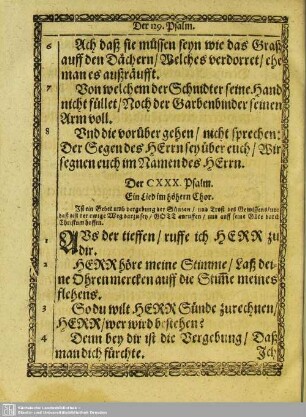 Der 129. Psalm.
6 Ach daß sie müssen seyn wie das Graß
auff den Dächern/ Welches verdorret/ ehe
man es außräufft.
7 Von welchem der Schnidter seine Hand
nicht füllet/ Noch der Garbenbinder seinen
Arm voll.
8 Vnd die vorüber gehen/ nicht sprechen:
Der Segen des HErrn sey über euch/ Wir
segnen euch im Namen des HErrn.
Der CXXX. Psalm.
Ein Lied im höhern Chor.
Ist ein Gebet vmb vergebung der Sünden/
der ewige Weg GOTT anruffen/ vnd auff seine Güte durch
Christum hoffen.
1 AVs der tieffen/ ruffe ich HERR zu
dir.
2 HERR höre meine Stimme/ Laß dei-
ne Ohren mercken auff die Stim̃e meines
flehens.
3 So du wilt HERR Sünde zurechnen/
HERR/ wer wird bestehen?
4 Denn bey dir ist die Vergebung/ Daß
man dich fürchte.
Ich